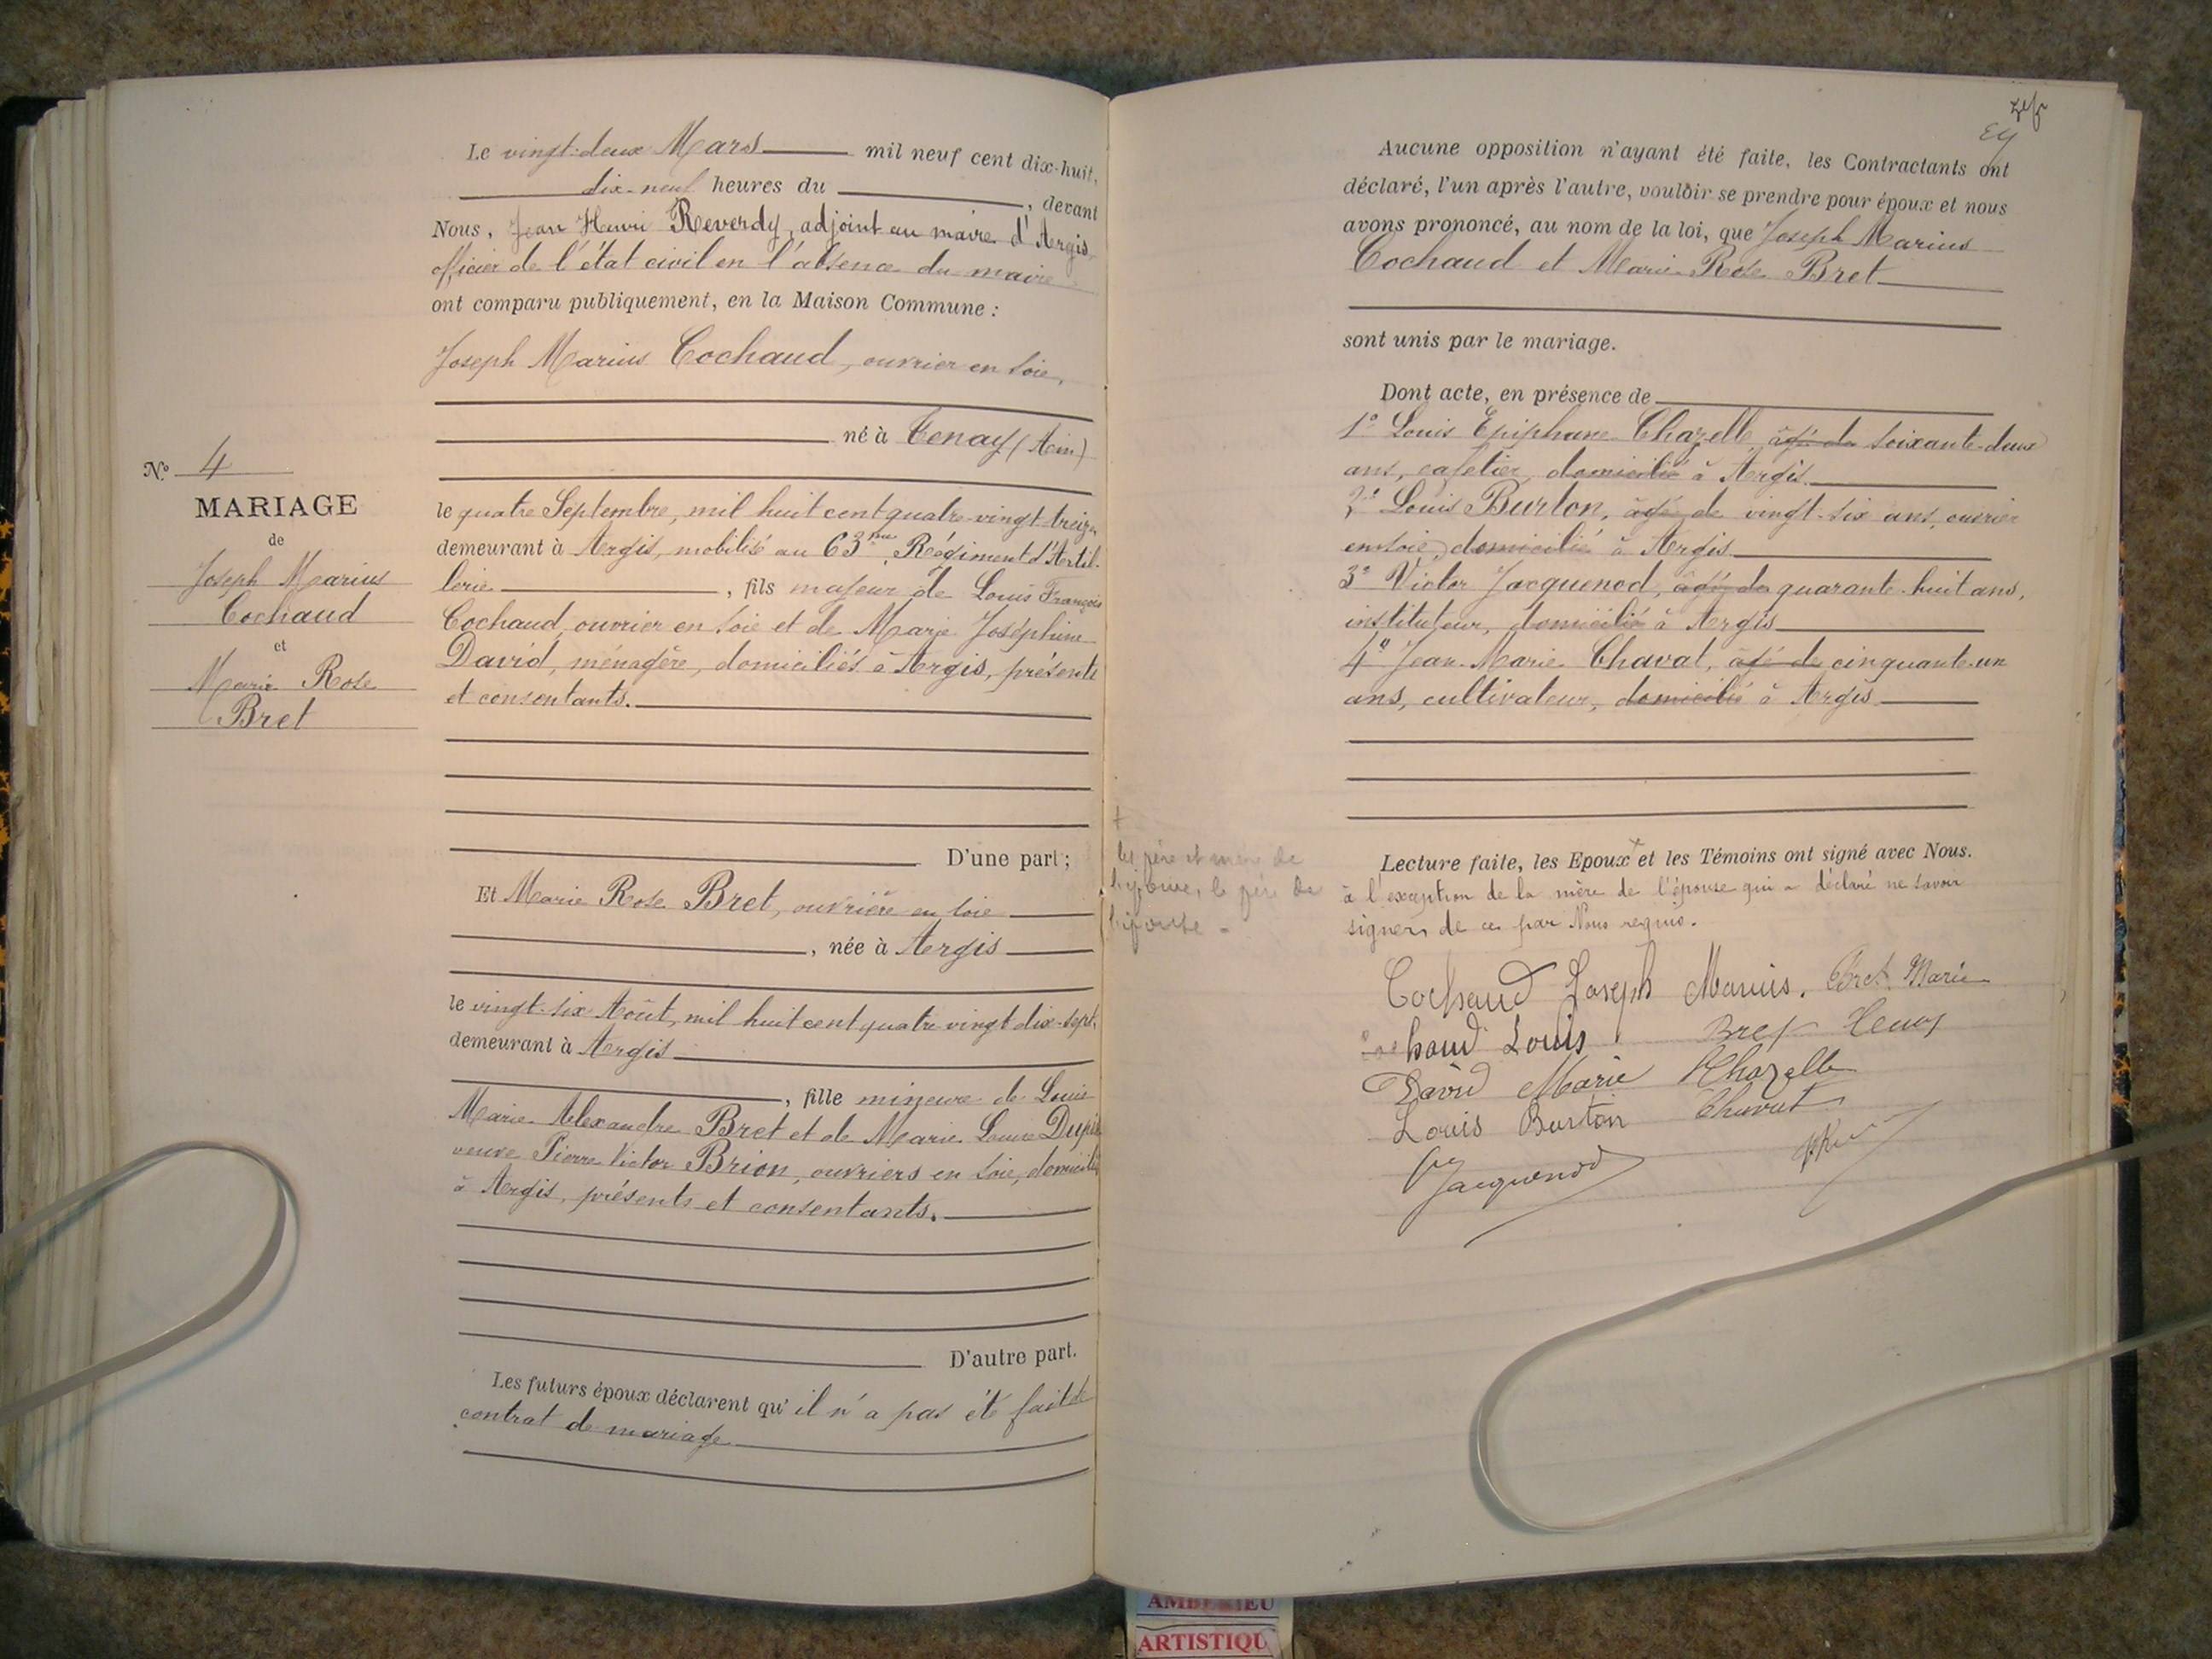 N.º 4
MARIAGE
de
Joseph Marius
Cochaud
et
Marie Rose
Bret
Le vingt-deux Mars mil neuf cent dix-huit,
dix-neuf heures du , devant
Nous, Jean Henri Reverdy, adjoint au maire d'Argis
officier de l'état civil en l'absence du maire
ont comparu publiquement, en la Maison Commune :
Joseph Marius Cochaud, ouvrier en soie,
né à Tenay (Ain)
le quatre Septembre, mil huit cent quatre-vingt-treize,
demeurant à Argis, mobilisé au 63me Régiment d'Artil-
lerie , fils majeur de Louis François
Cochaud, ouvrier en soie et de Marie Joséphine
David, ménagère, domiciliés à Argis, présents
et consentants.
D'une part ;
Et Marie Rose Bret, ouvrière en soie
, née à Argis
le vingt-six Août, mil huit cent quatre vingt dix-sept,
demeurant à Argis
, fille mineure de Louis
Marie Alexandre Bret et de Marie Louise
veuve Pierre Victor Brion, ouvriers en soie, domiciliés
à Argis, présents et consentants.
D'autre part.
Les futurs époux déclarent qu'il n'a pas été fait de
contrat de mariage
Aucune opposition n'ayant été faite, les Contractants ont
déclaré, l'un après l'autre, vouloir se prendre pour époux et nous
avons prononcé, au nom de la loi, que Joseph Marius
Cochaud et Marie Rose Bret
sont unis par le mariage.
Dont acte, en présence de
1º Louis Epiphane Chazelle, âgé de soixante-deux
ans, cafetier, domicilié à Argis.
2º Louis Burton, âgé de vingt-six ans, ouvrier
en soie, domicilié à Argis
3º Victor Jacquenod, âgé de quarante-huit ans,
instituteur, domicilié à Argis
4º Jean-Marie Chavat, âgé de cinquante-un
ans, cultivateur, domicilié à Argis
+
les père et mère de
l'époux, le père de
l'épouse -
Lecture faite, les Epoux + et les Témoins ont signé avec Nous.
à l'exception de la mère de l'épouse qui a déclaré ne savoir
signer, de ce par Nous requis.
Cochaud Joseph Marius. Bret Marie
Cochaud Louis Bret
David Marie Chazelle
Louis Burton Chavat
Jacquenod
AMBERIEU
ARTISTIQU